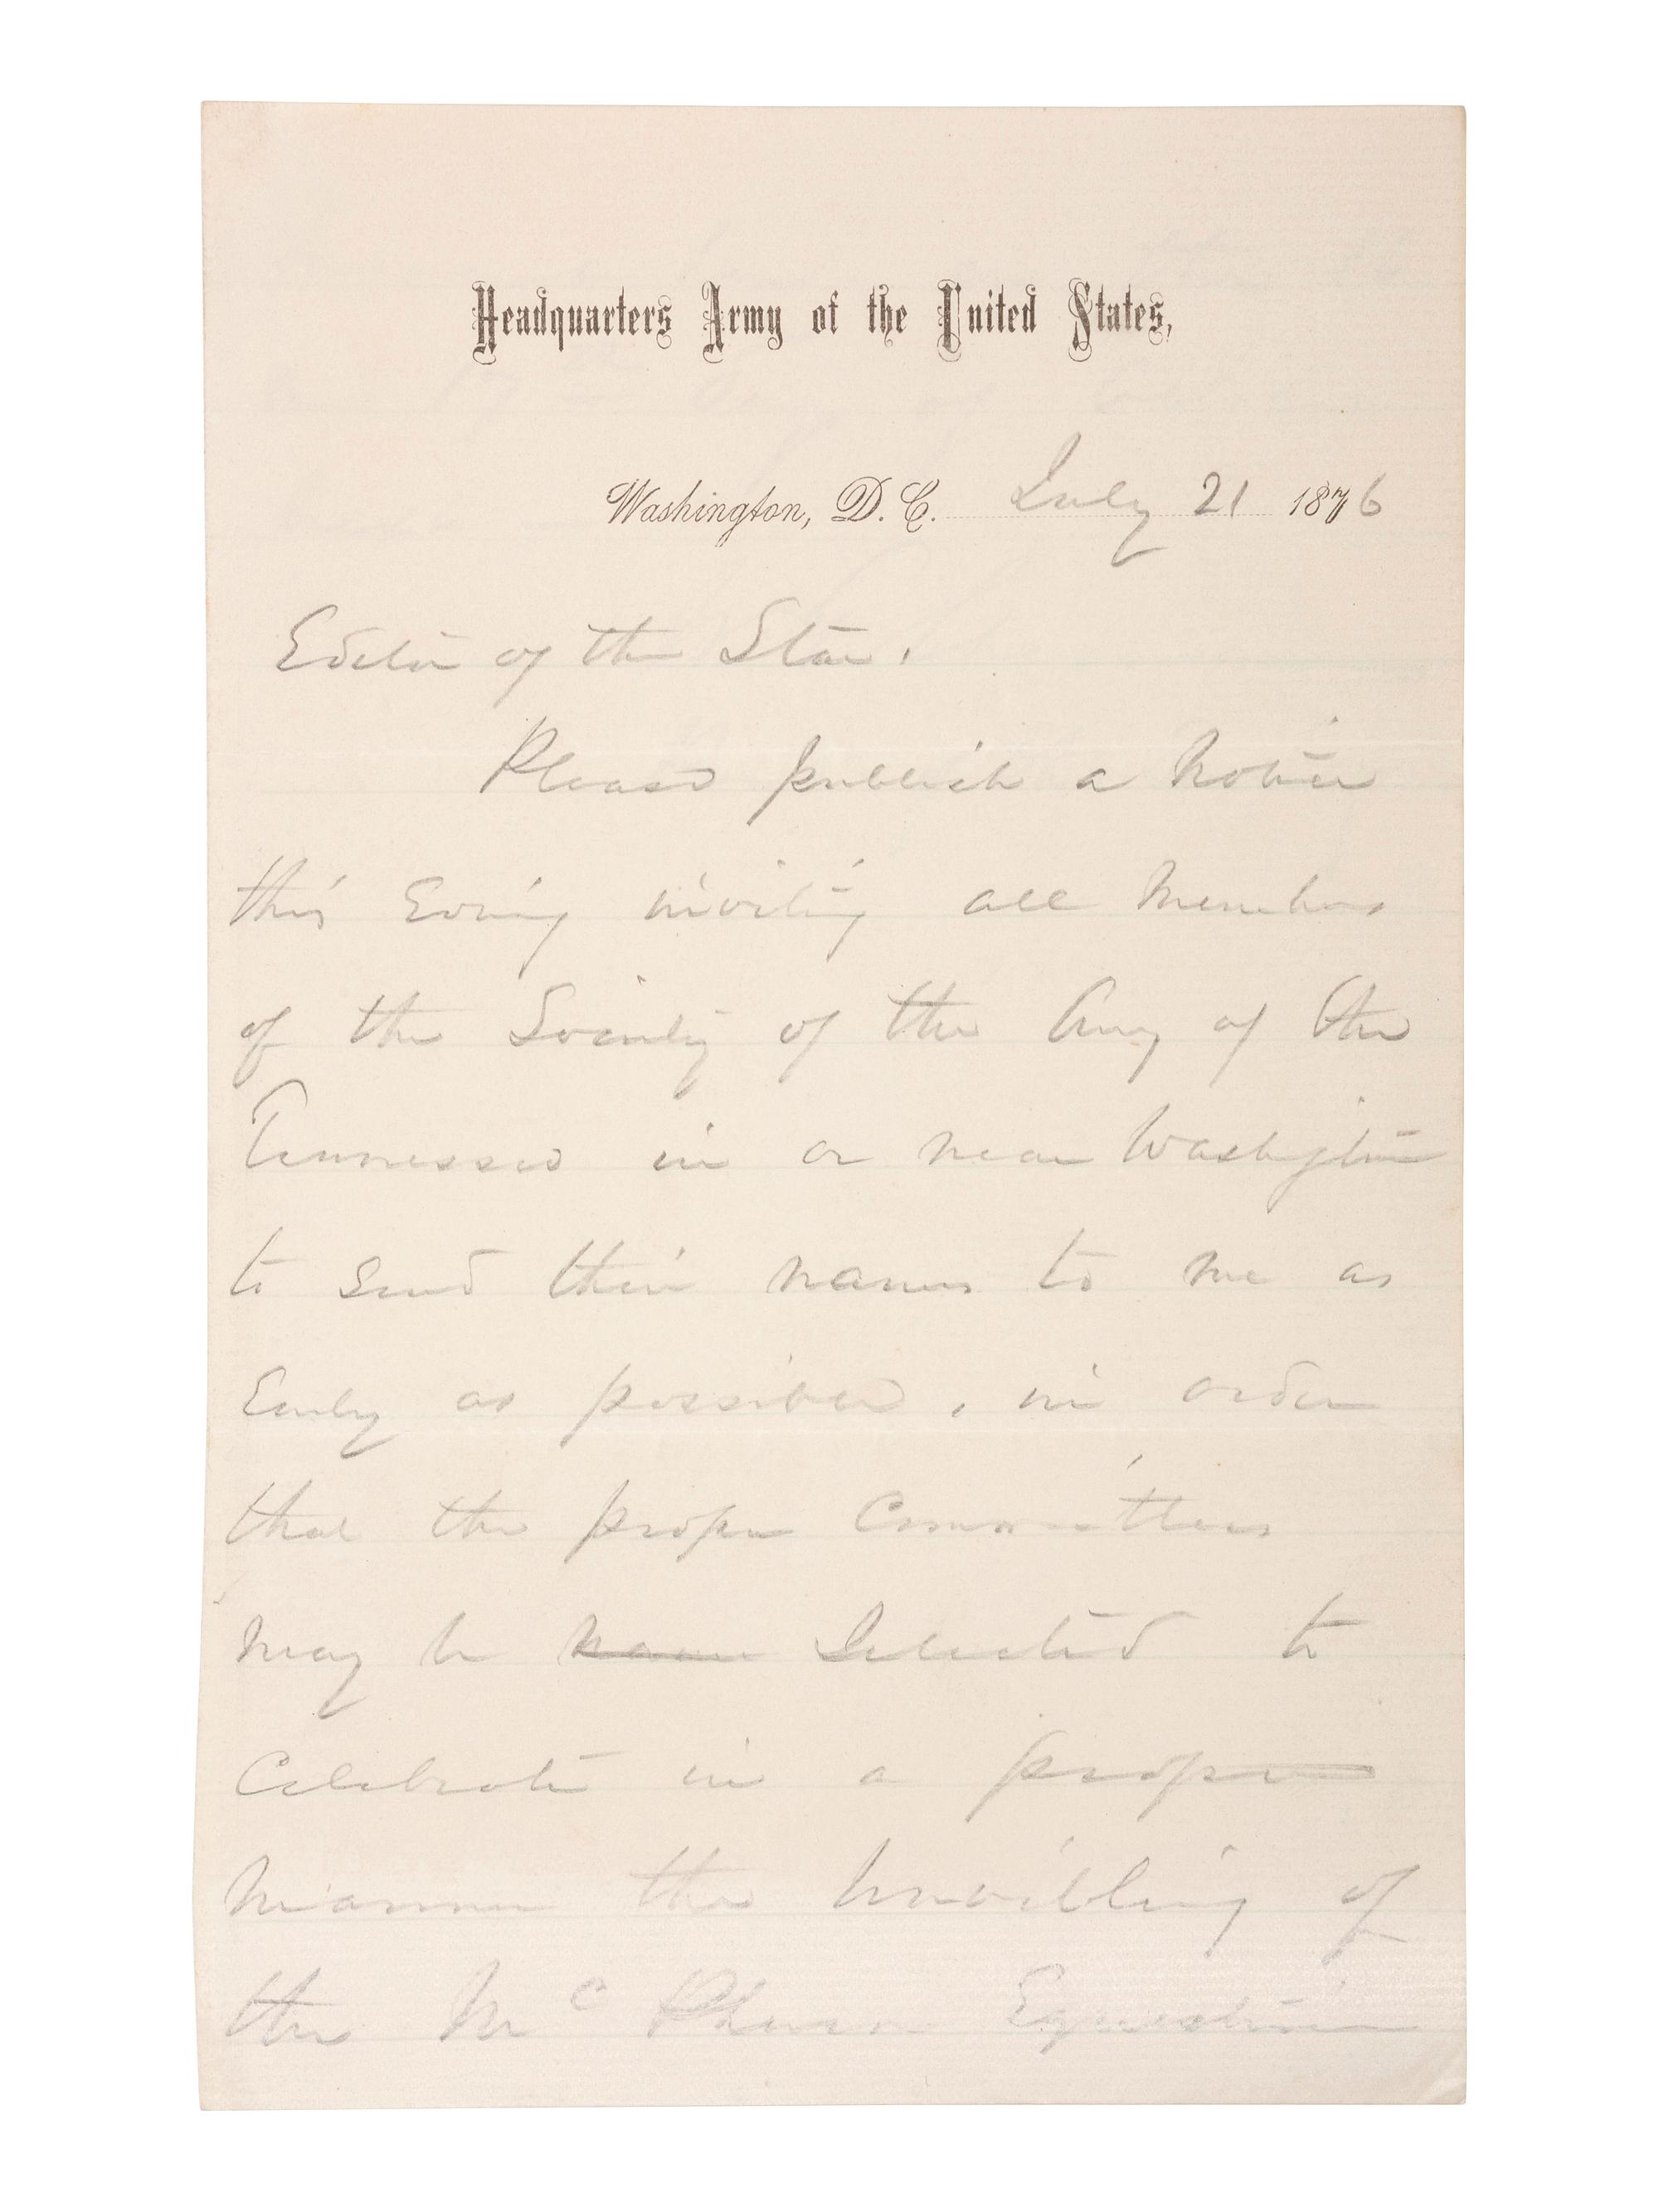 Headquarters Army of the United States,
Washington, D. C. July 21 1876
Editor of the Star.
Please publish a notice
this Evening inviting all members
of the Society of the Army of the
Tennessee in or near Washington
to send their names to me as
Early as possible, in order
that the proper Committees
may be name Selected to
Celebrate in a proper
manner the unveiling of
the McPherson Equestrian